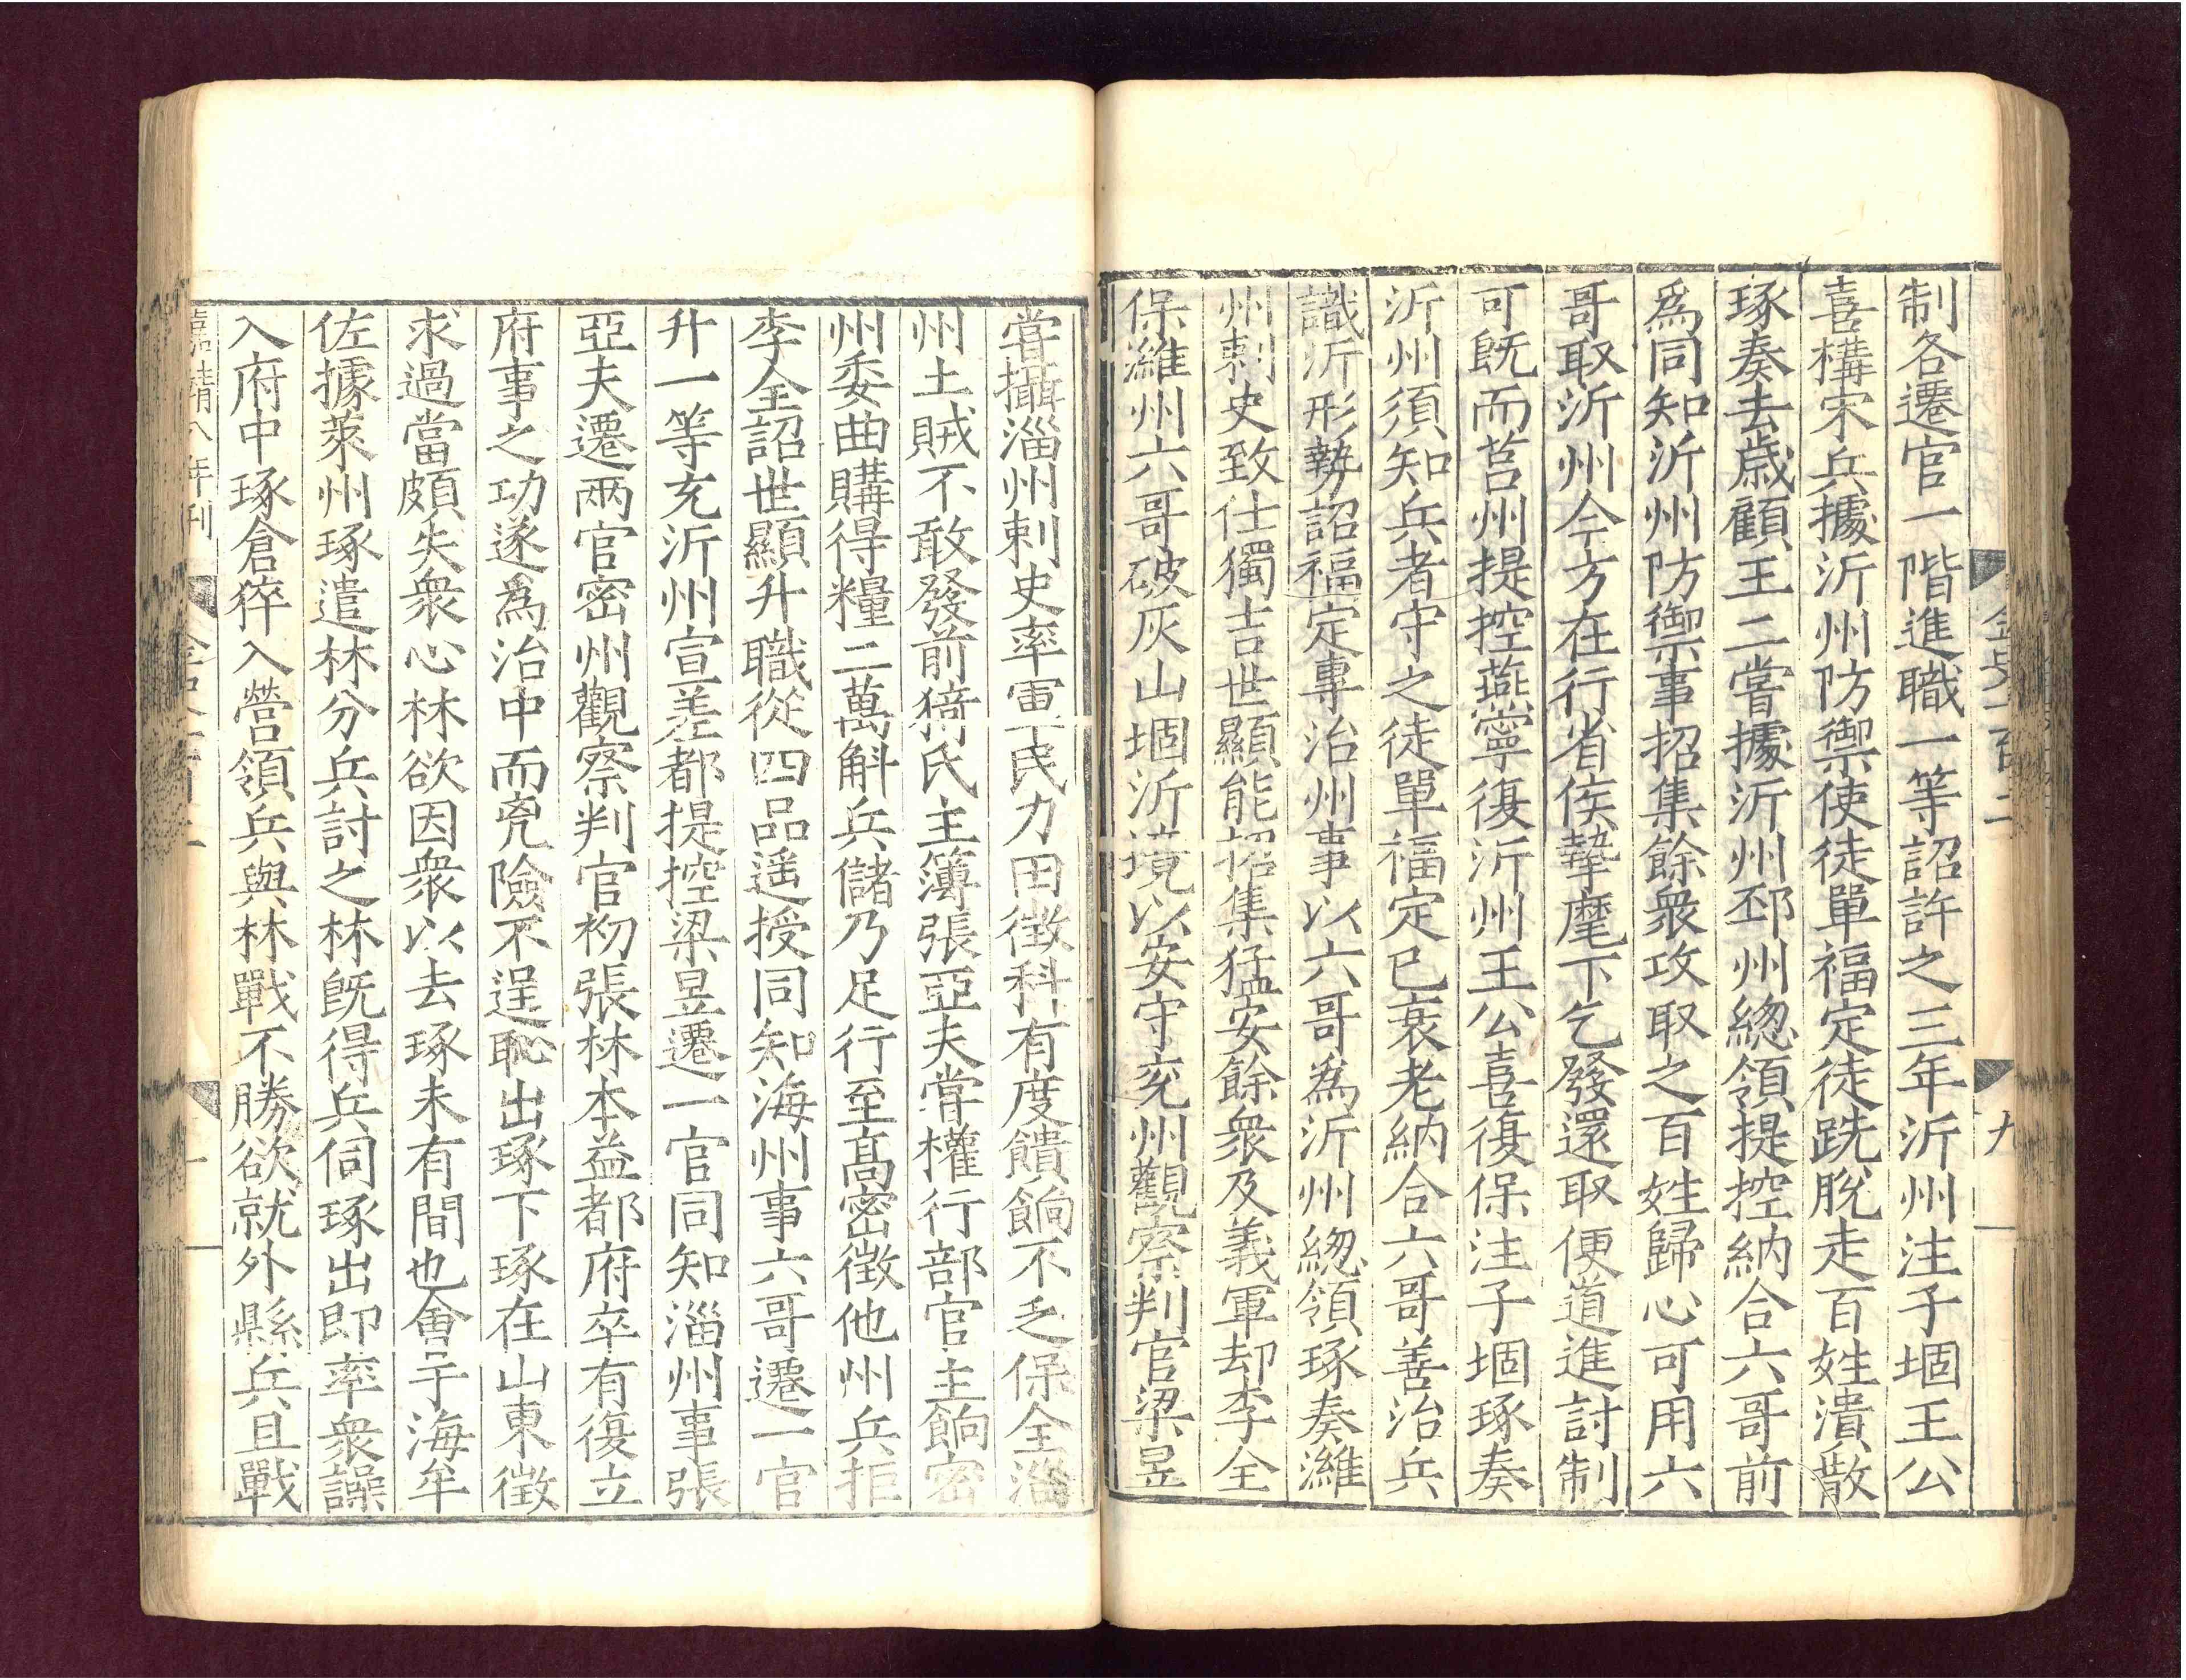 金史一百二
九
制各遷官一階進職一等詔許之三年沂州注子堌王公
喜構宋兵據沂州防禦使徒單福定徒跣脫走百姓潰散
琢奏去歲顧王二嘗據沂州邳州緫領提控納合六哥前
爲同知沂州防禦事招集餘衆攻取之百姓歸心可用六
哥取沂州今方在行省侯摯麾下乞發還取便道進討制
可旣而莒州提控燕寧復沂州王公喜復保注子堌琢奏
沂州須知兵者守之徒單福定已衰老納合六哥善治兵
識沂形勢詔福定專治州事以六哥爲沂州緫領琢奏濰
州刺史致仕獨吉世顯能招集猛安餘衆及義軍却李全
保濰州六哥破灰山堌沂境以安守兖州觀察判官梁昱
嘗攝淄州刺史率軍民力田徵科有度饋餉不乏保全淄
州土賊不敢發前猗氏主簿張亞夫嘗權行部官主餉密
州委曲購得糧二萬斛兵儲乃足行至髙密徵他州兵拒
李全詔世顯升職從四品遥授同知海州事六哥遷一官
升一等充沂州宣差都提控梁昱遷一官同知淄州事張
亞夫遷兩官密州觀察判官初張林本益都府卒有復立
府事之功遂爲治中而兇險不逞恥出琢下琢在山東徵
求過當頗失衆心林欲因衆以去琢未有間也會于海牟
佐據萊州琢遣林分兵討之林旣得兵伺琢出即率衆譟
入府中琢倉猝入營領兵與林戰不勝欲就外縣兵且戰
嘉靖八年刊